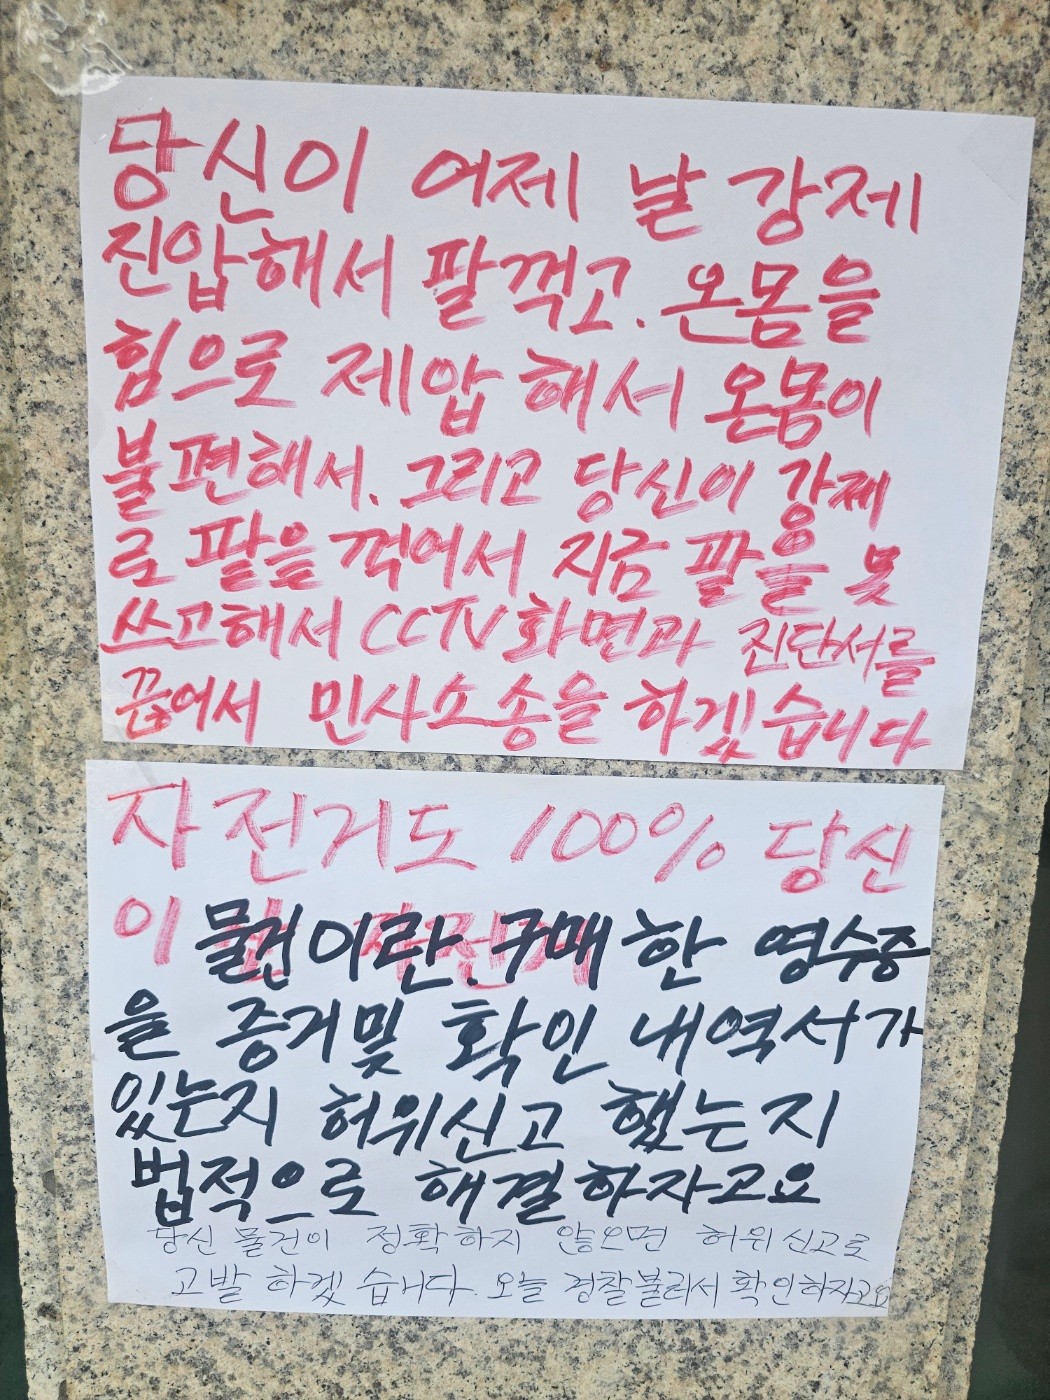 당신이 어제 날 강제
진압해서 팔꺽고. 온몸을
힘으로 제압해서 온몸이
불편해서. 그리고 당신이 강제
로 팔을 꺽어서 지금 팔을 못
쓰고해서 CCTV화면과 진단서를
끊어서 민사소송을 하겠습니다
자전거도 100% 당신
이 물건이란. 구매한 영수증
을 증거및 확인 내역서가
있는지 허위신고 했는지
법적으로 해결하자고요
당신 물건이 정확하지 않으면 허위신고로
고발 하겠습니다. 오늘 경찰불러서 확인하자고요